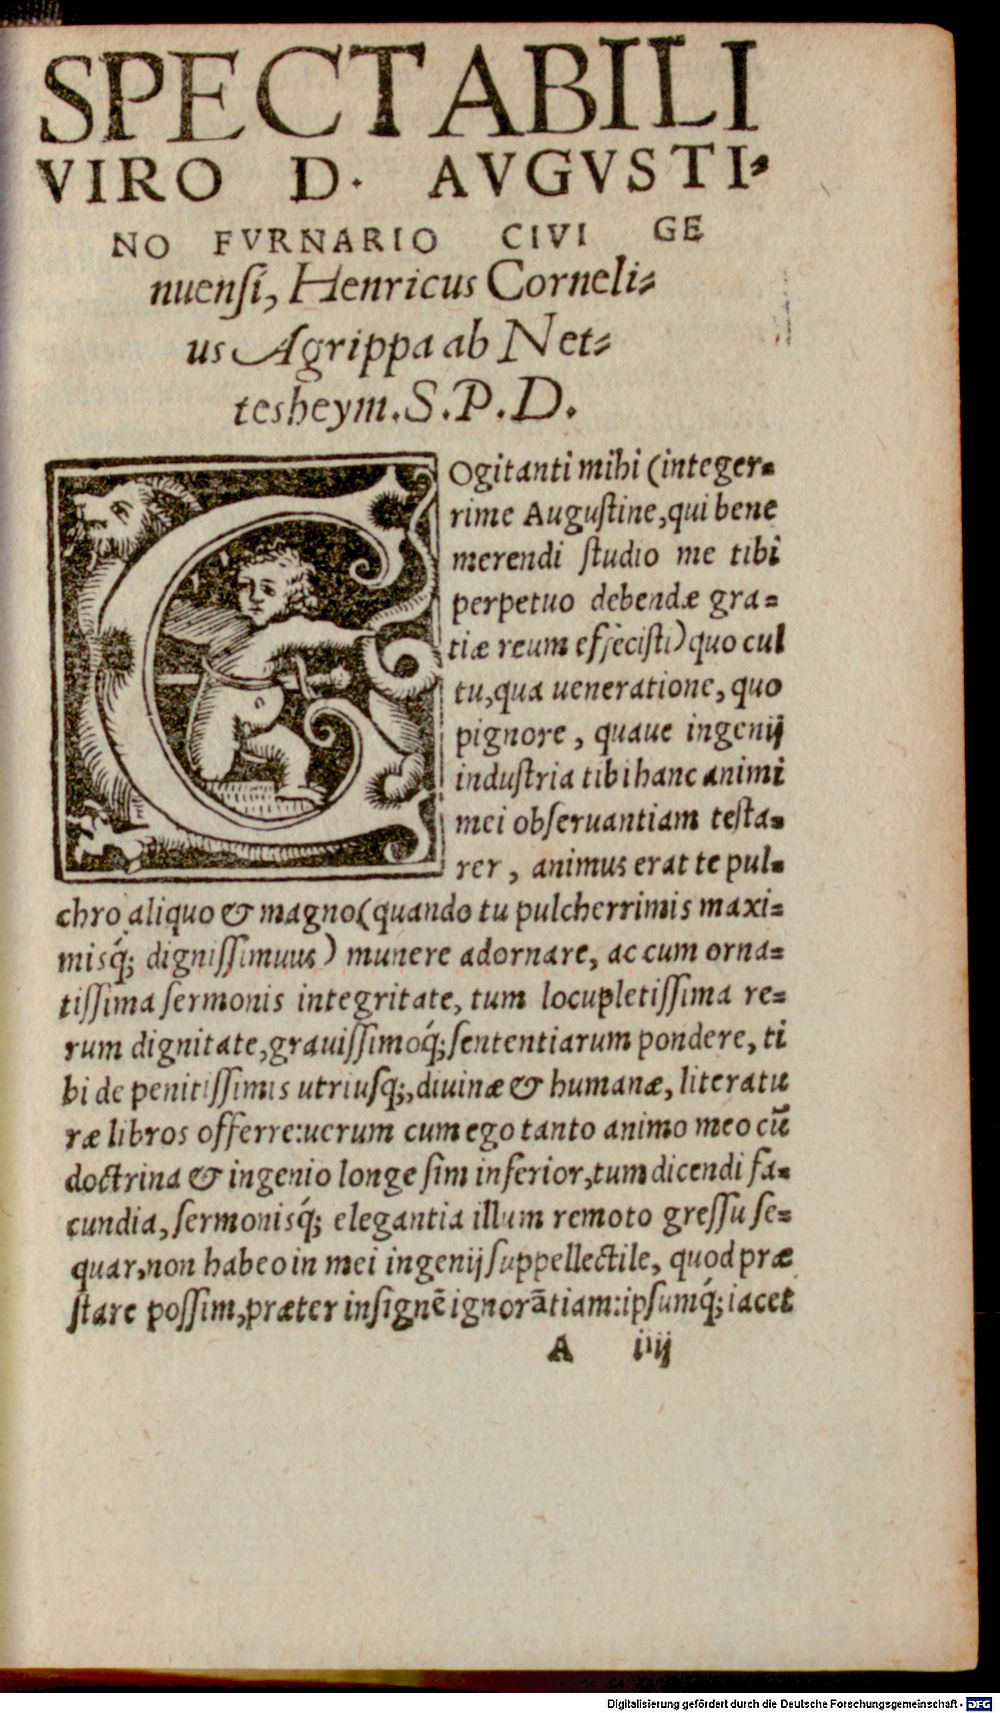 SPECTABILI
VIRO D. AVGVSTI⸗
NO FVRNARIO CIVI GE
nuenſi, Henricus Corneli⸗
us Agrippa ab Net⸗
tesheym. S. P. D.
COgitanti mihi (integer⸗
rime Auguſtine, qui bene
merendi ſtudio me tibi
perpetuo debendæ gra⸗
tiæ reum effeciſti) quo cul
tu, qua ueneratione, quo
pignore, quaue ingenij
induſtria tibi hanc animi
mei obſeruantiam teſta⸗
rer, animus erat te pul⸗
chro aliquo & magno (quando tu pulcherrimis maxi⸗
misq́; digniſſimuus) munere adornare, ac cum orna⸗
tiſſima ſermonis integritate, tum locupletiſſima re⸗
rum dignitate, grauiſſimoq́; ſententiarum pondere, ti
bi de penitiſſimis utriuſq;, diuinæ & humanæ, literatu
ræ libros offerre: uerum cum ego tanto animo meo cū
doctrina & ingenio longe ſim inferior, tum dicendi fa⸗
cundia, ſermonisq́; elegantia illum remoto greſſu ſe⸗
quar, non habeo in mei ingenij ſuppellectile, quod præ
ſtare poſſim, præter inſignē ignorātiam: ipſumq́; iacet
A iiij
Digitalisierung gefördert durch die Deutsche Forschungsgemeinschaft - DFG